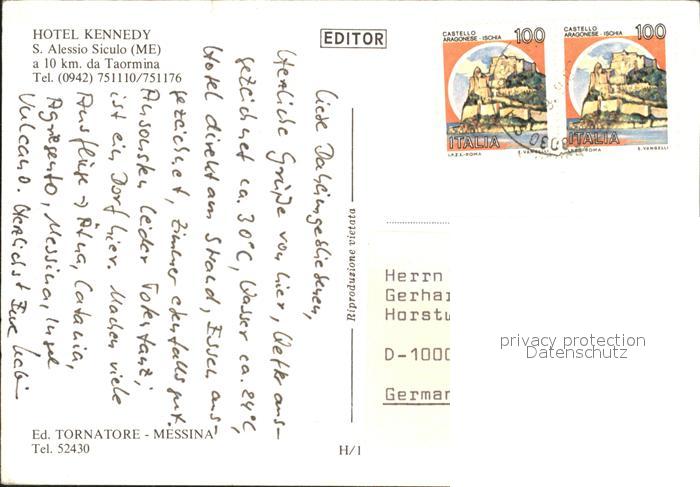 HOTEL KENNEDY
S. Alessio Siculo (ME)
a 10 km. da Taormina
Tel. (0942) 751110/751176
EDITOR
CASTELLO
ARAGONESE - ISCHIA
100
ITALIA
I.P.Z.S.-ROMA
E. VANGELLI
CASTELLO
ARAGONESE - ISCHIA
100
ITALIA
I.P.Z.S.-ROMA
E. VANGELLI
Liebe Daheimgebliebenen,
Herzliche Grüße von hier, Wetter aus-
gezeichnet ca. 30°C, Wasser ca. 24°C,
Hotel direkt am Strand, Essen aus-
gezeichnet, Zimmer ebenfalls gut.
Ansonsten leider Totentanz,
ist ein Dorf hier. Machen viele
Ausflüge → Ätna, Catania,
Agrigento, Messina, Insel
Vulcano. Herzlichst Eure
Riproduzione vietata
Herrn
Gerhar
Horstw
D-1000
German
privacy protection
Datenschutz
Ed. TORNATORE - MESSINA
Tel. 52430
H/1